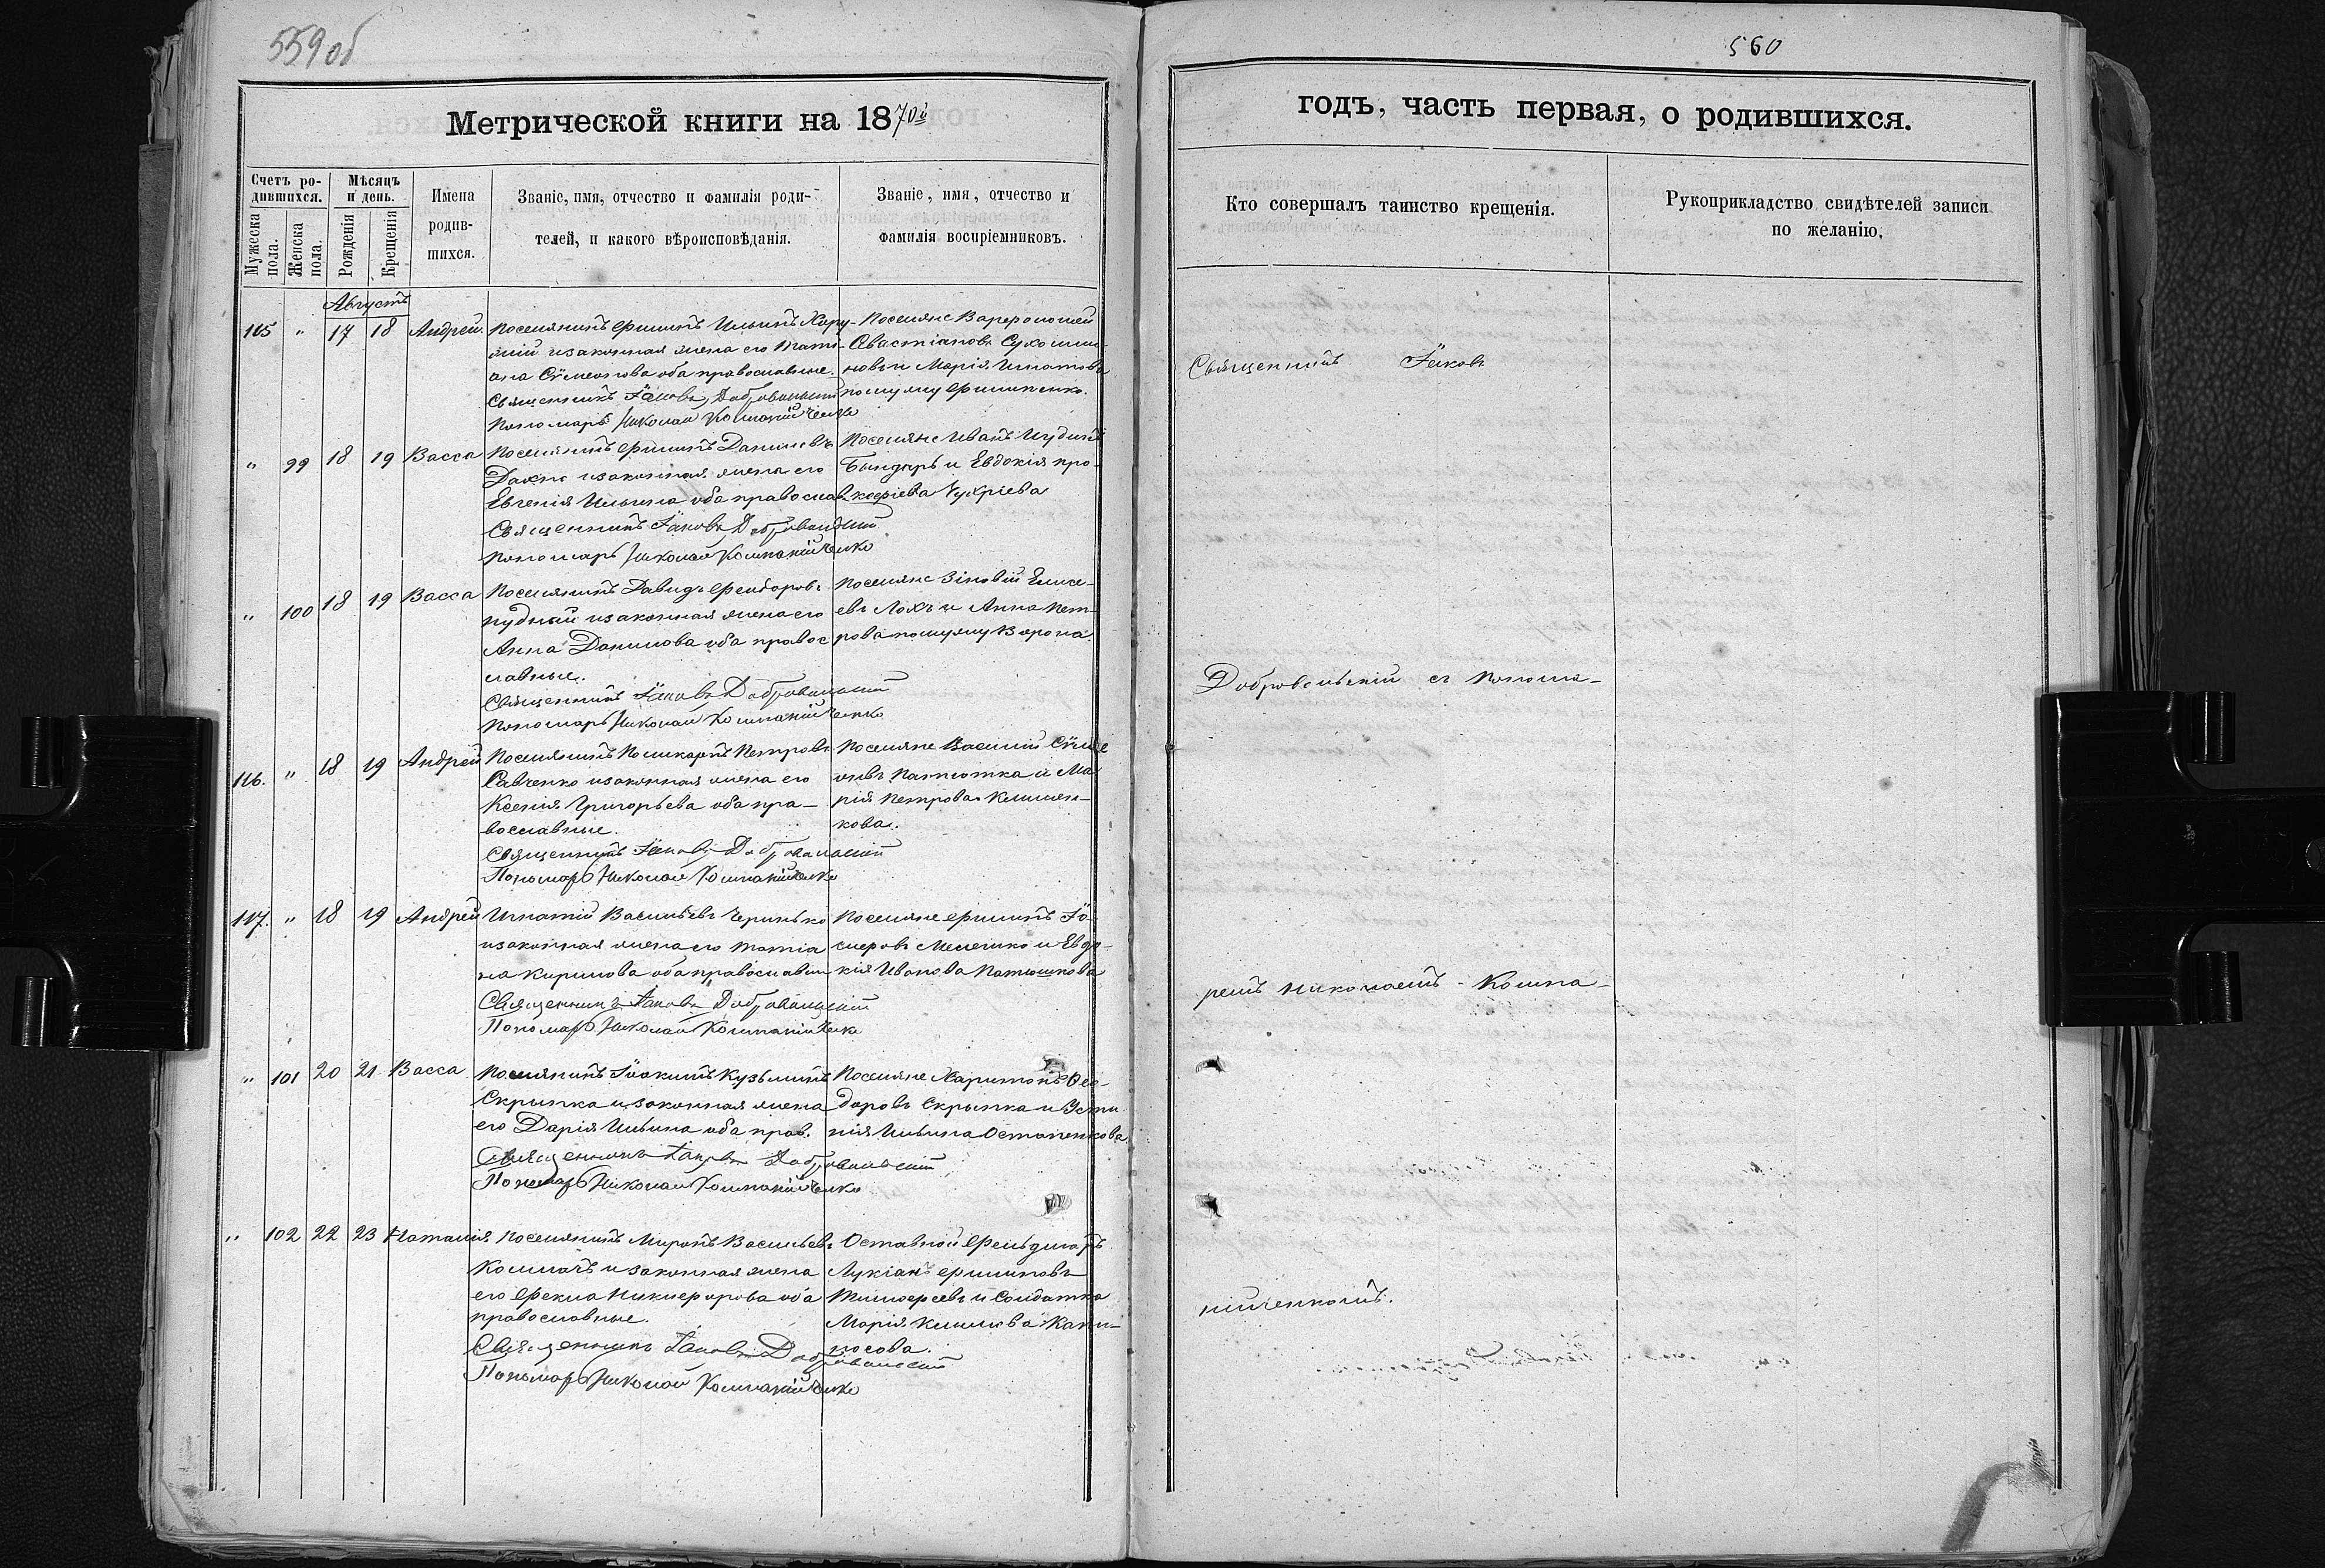 559 об
Метрической книги на 1870й
Счетъ ро-
дившихся.
Мѣсяцъ
и день.
Мужеска пола.
Женска пола.
Рожденія
Крещенія
Имена
родив-
шихся.
Званіе, имя, отчество и фамилія роди-
телей, и какого вѣроисповѣданія.
Званіе, имя, отчество и
фамилія воспріемниковъ.
Августъ
115 " 17 18 Андрей.
Поселянинъ Филипъ Ильинъ
и законная жена его Тати-
ана Сѵмеонова оба православные.
Священникъ Іаковъ Добровольскій
Пономарь Николай Компанійченко
Поселяне Варфоломей
Севастіановъ
новъ и Марія Игнатова
по мужу Филипенко.
" 99 18 19 Васса
Поселянинъ Филипъ Даниловъ
Дахно и законная жена его
Евгенія Ильина оба православ.
Священникъ Іаковъ Добровольскій
Пономарь Николай Компанійченко
Поселяне Иванъ Іудинъ
Бындарь и Евдокія Про-
кофіева Чухріева
" 100 18 19 Васса
Поселянинъ Давидъ Феодоровъ
Пудный и законная жена его
Анна Данилова оба правос
лавные.
Священникъ Іаковъ Добровольскій
Пономарь Николай Компанійченко
Поселяне Зіновій Елисе-
евъ Лохъ и Анна Пет-
рова по мужу Ворона.
116. " 18 19 Андрей
Поселянинъ Поликарпъ Петровъ
Савченко и законная жена его
Ксенія Григорьева оба пра-
вославные.
Священникъ Іаковъ Добровольскій
Пономарь Николай Компанійченко
Поселяне Василій Сѵме
оновъ Патютка и Ма
рія Петрова Климен-
кова.
117. " 18 19 Андрей
Игнатій Васильевъ Чернько
и законная жена его Татіа
на Кирилова оба православн
Священникъ Іаковъ Добровольскій
Пономарь Николай Компанійченко
Поселяне Филипъ Іо-
сифовъ Мелешко и Евдо-
кія Иванова Патюшкова
" 101 20 21 Васса
Поселянинъ Іоакимъ Кузьминъ
Скрыпка и законная жена
его Дарія Ильина оба прав.
Священникъ Іаковъ Добровольскій
Пономарь Николай Компанійченко
Поселяне Харитонъ Фео-
доровъ Скрыпка и Усти
нія Ильина Остапенкова.
" 102 22 23 Наталія
Поселянинъ Миронъ Васильевъ
Колпачь и законная жена
его Фекла Никифорова оба
православные.
Священникъ Іаковъ Добровольскій
Пономарь Николай Компанійченко
Оставной Фельдшаръ
Лукіанъ Филиповъ
Тимофеевъ и Солдатка
Марія Климова Капи-
носова.
560
годъ, часть первая, о родившихся.
Кто совершалъ таинство крещенія.
Рукоприкладство свидѣтелей записи
по желанію.
Священникъ Іаковъ
Добровольскій съ Понома-
ремъ Николаемъ Компа-
нійченкомъ.